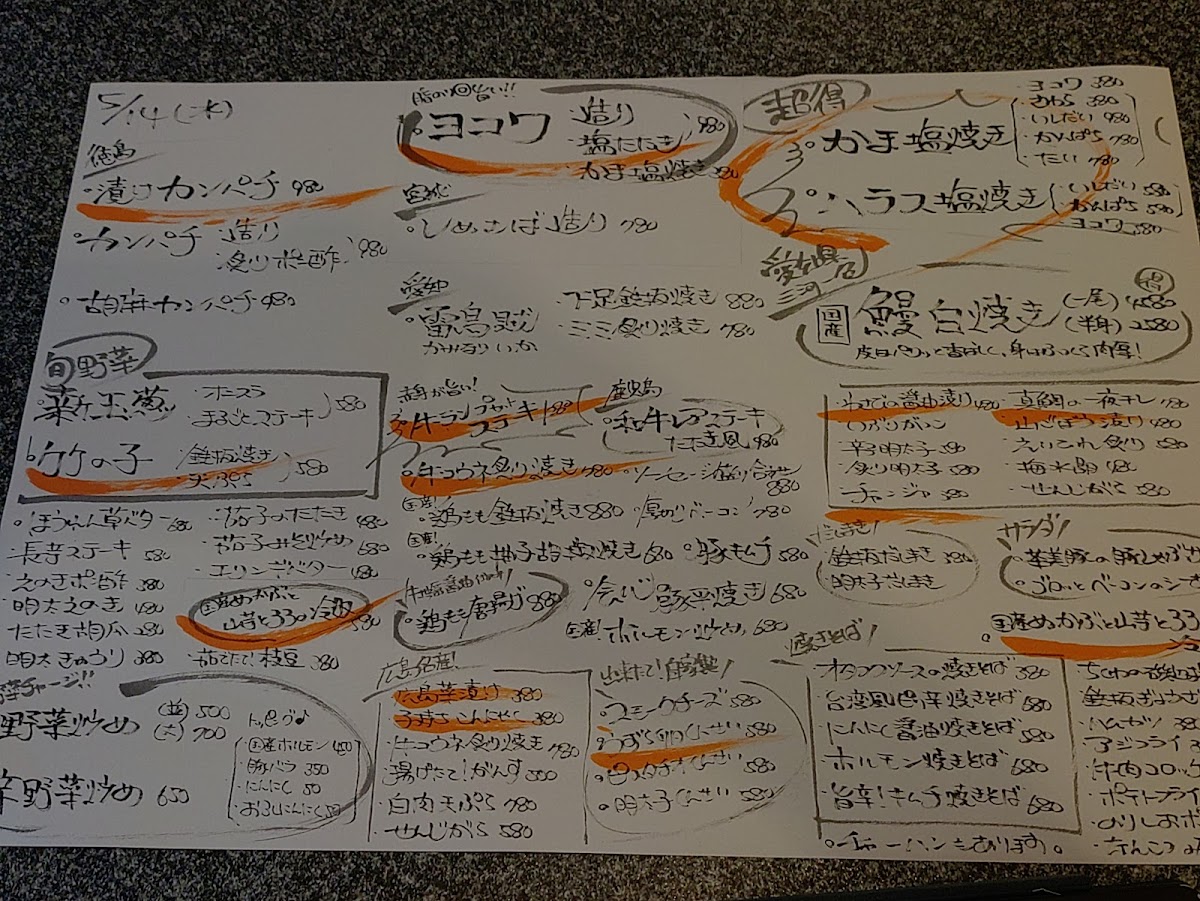 5/14(水)
徳島
・漬けカンパチ 980
・カンパチ 造り
炙りポン酢 980
・胡麻カンパチ 980
旬野菜
・新玉葱 ・ホニスラ
・まるごとステーキ 580
・竹の子 ・鉄板焼き
・天ぷら 580
・ほうれん草バター 680
・長芋ステーキ 580
・えのきポン酢 380
・明太えのき 480
・たたき胡瓜 280
・明太きゅうり 380
・茄子のたたき 480
・茄子みそ炒め 680
・エリンギバター 480
国産めかぶと
山芋とろろの
580
・茹でたて!枝豆 380
チャージ!!
野菜炒め (並)500
(大)700
辛野菜炒め 650
トッピング♪
・国産ホルモン 400
・豚バラ 350
・にんにく 50
・おろしにんにく 50
・ヨコワ 造り
・塩たたき 980
・かま塩焼き 380
・しめさば造り 780
愛知
・雷烏賊
かみなりいか
・下足鉄板焼き 880
・ミミ炙り焼き 780
赤身が旨い!
牛ランプ
ステーキ
鹿児島
和牛レアステーキ
たたき風 980
・牛コウネ炙り焼き 780
・ソーセージ盛り合せ 880
国産!
・鶏もも鉄板焼き 880
・厚切りベーコン 780
国産!
・鶏もも柚子胡塩焼き 680
・豚キムチ 580
・鶏もも唐揚げ 880
豚平焼き 680
国産!ホルモン炒め 680
広島名産!
・広島菜漬け 380
・うずらこんにゃく 380
・牛コウネ炙り焼き 780
・揚げたて!がんす 500
・白肉天ぷら 780
・せんじがら 580
出来たて!自家製!
・スモークチーズ 580
・うずら卵くんせい 580
くんせい 580
・明太子くんせい 580
超得
・かま塩焼き
・ヨコワ 380
・さわら 380
・いしだい 980
・かんぱち 780
・たい 780
・ハラス塩焼き
・いしだい 580
・かんぱち 580
・ヨコワ 580
愛知県
三河一色
国産 鰻白焼き (一尾)4580
(半身)2580
皮目パリッと香ばしく、身はふっくら肉厚!
・わさび醤油漬り 480
・いぶりがっこ
・辛子明太子 580
・炙り明太子 580
・チャンジャ 580
・真鯛の一夜干し 780
・山ごぼう漬り 480
・えいひれ炙り 580
・梅水晶 480
・せんじがら 580
だし巻き!
・鉄板だし巻き 580
・明太子だし巻き
サラダ!
・華美豚の豚しゃぶ
・ゴロッとベーコンのシーザ
国産めかぶと山芋とろろ
焼きそば!
・オタフクソースの焼きそば 580
・台湾風旨辛焼きそば 680
・にんにく醤油焼きそば 680
・ホルモン焼きそば 680
・旨辛!キムチ焼きそば 680
・チャーハンもあります。
・ちくわの磯辺
・鉄板ぎょうざ
・ハムカツ 38
・アジフライ
・牛肉コロッケ
・ポテトフライ
・のりしおポ
・なんこつの